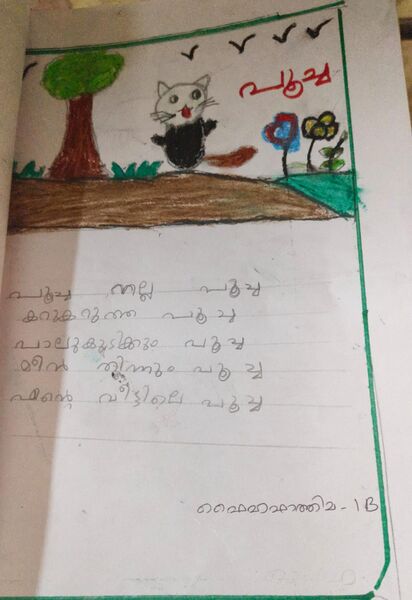 പൂച്ച
പൂച്ച നല്ല പൂച്ച
കറുകറുത്ത പൂച്ച
പാലുകുടിക്കും പൂച്ച
മീൻ തിന്നും പൂച്ച
എന്റെ വീട്ടിലെ പൂച്ച
- 1 B